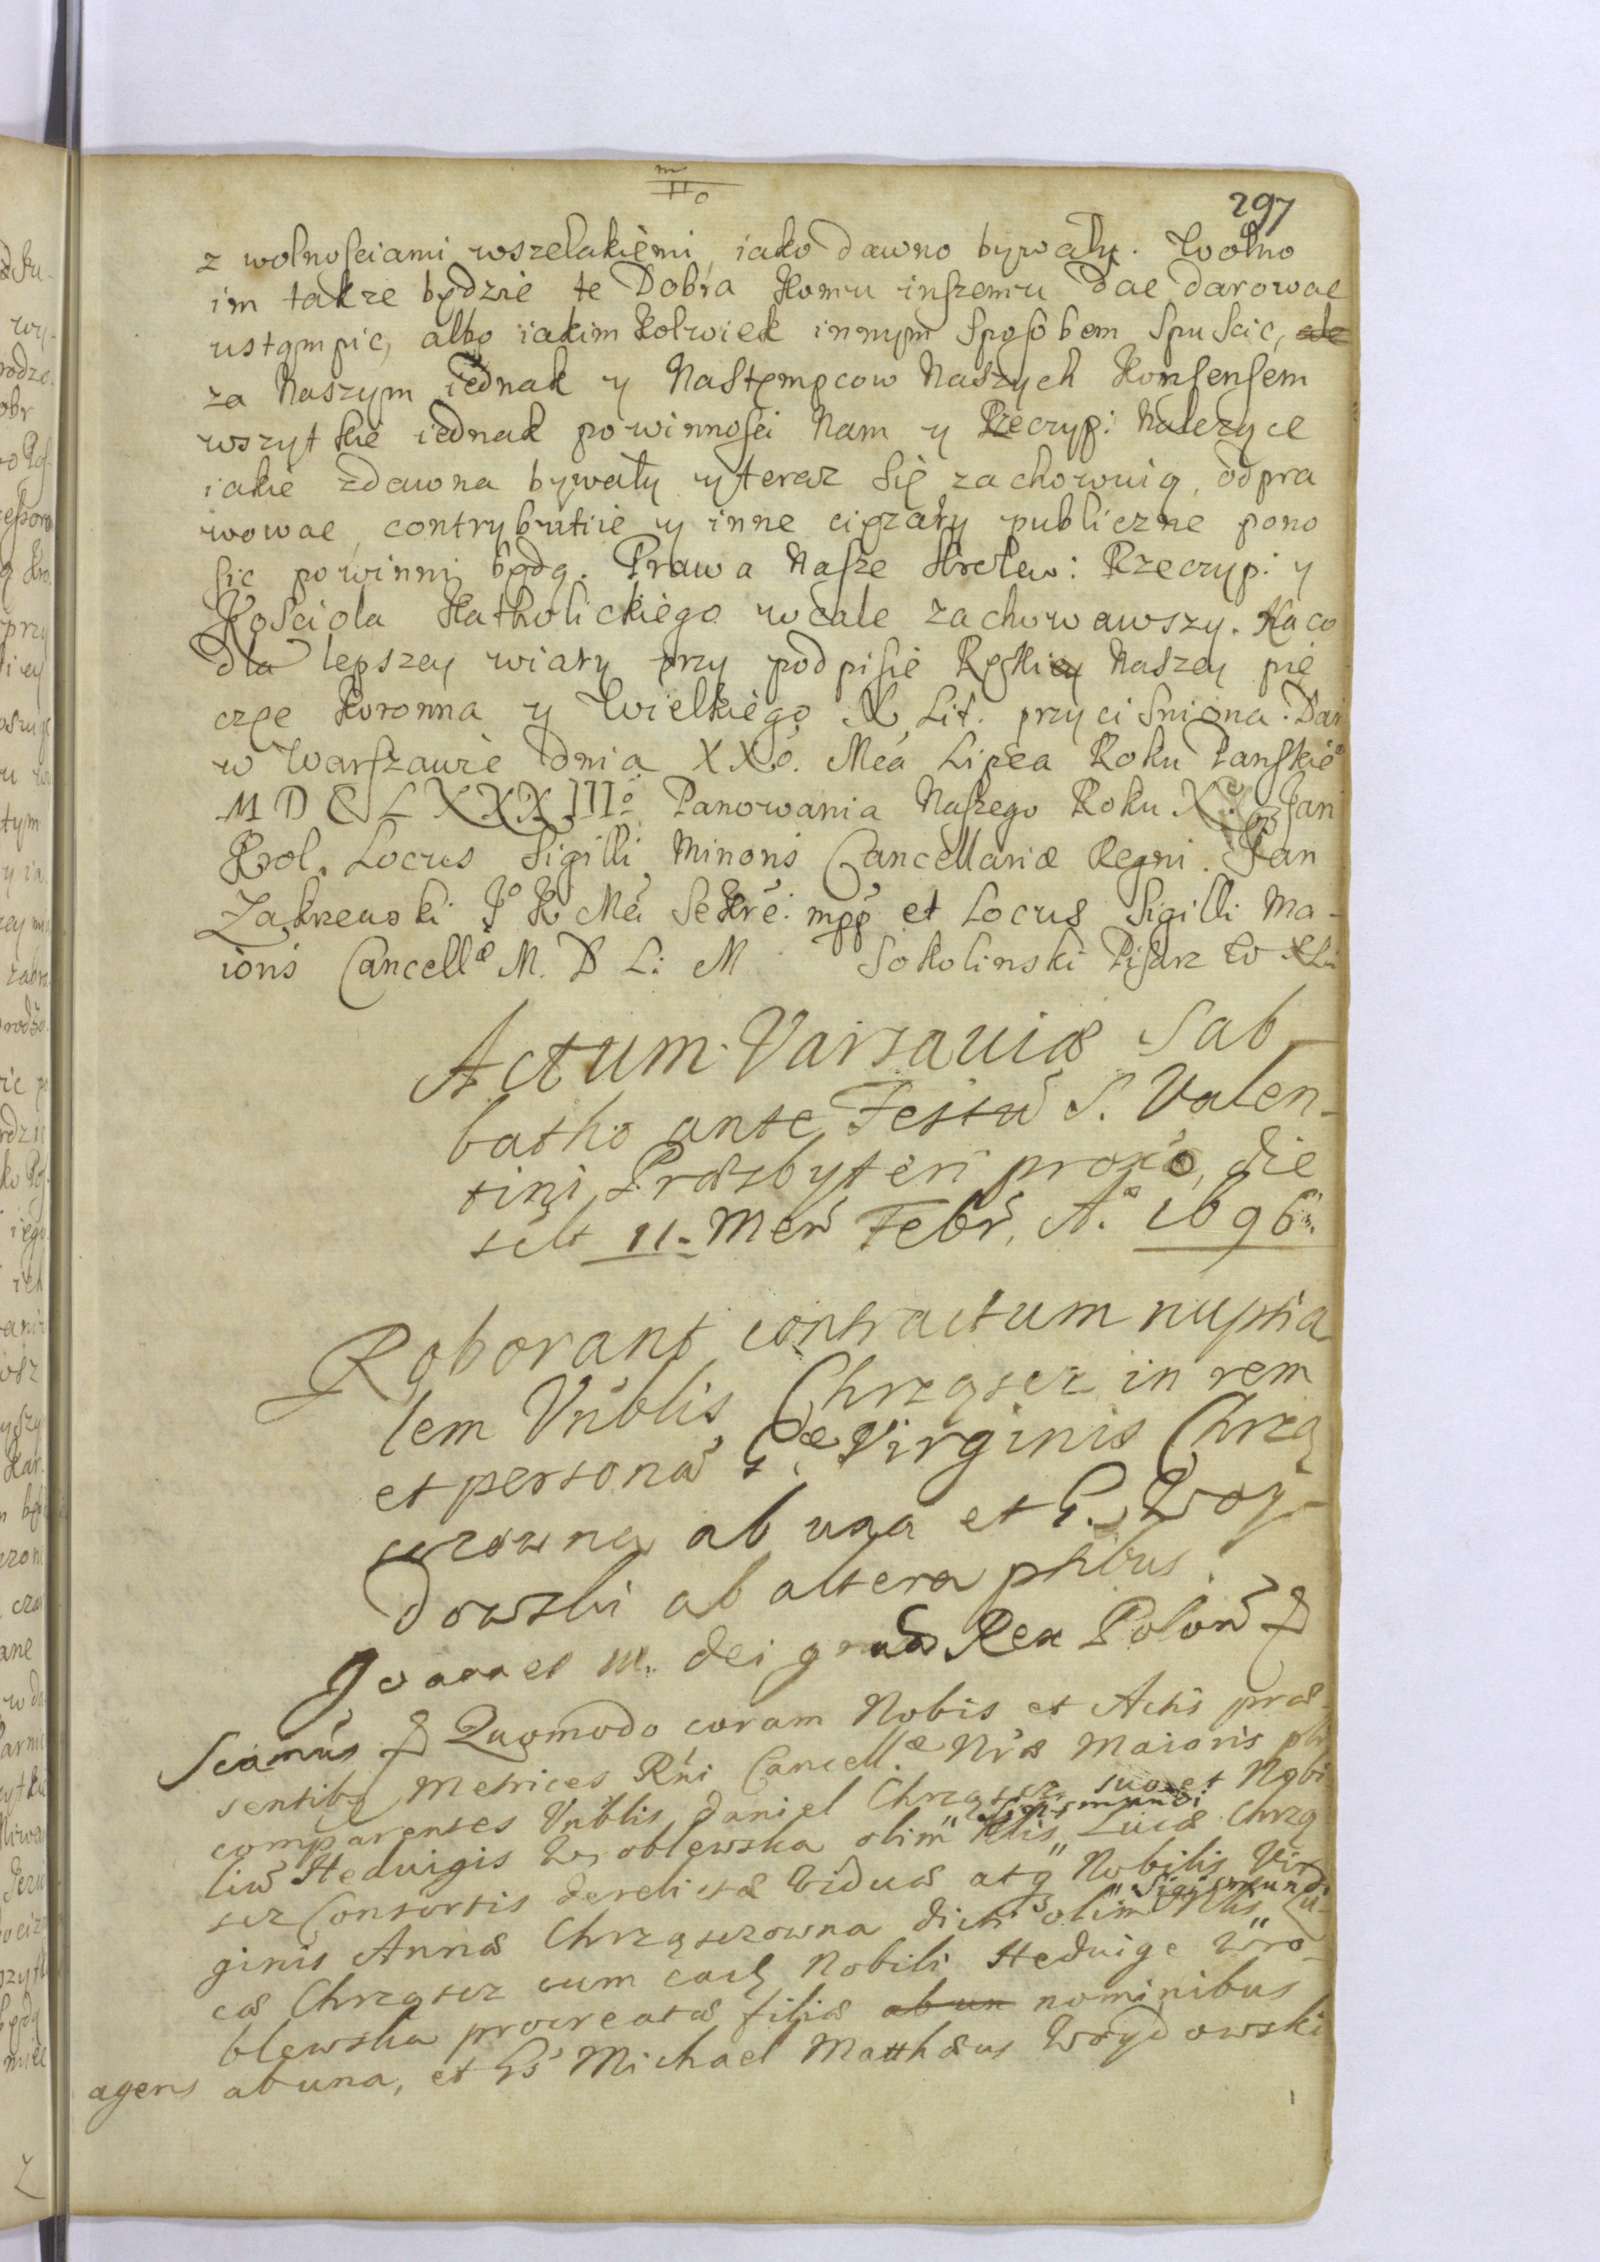 297
z wolnosciami wszelakiemi, iako dawno bywały. Wolno
im takze będzie te Dobra komu inszemu dac darowac
ustąmpic, albo iakim kolwiek innym sposobem spuscic, ale
za Naszym iednak y Nastempcow Naszych Konsensem
wszytkie iednak powinnosci Nam y Rzeczyp: Nalezące
iakie zdawna bywały y teraz się zachowuią, odpra
wowac, contrybutiie y inne cięzary publiczne pono
sic powinni będą. Prawa Nasze Krolew: Rzeczyp: y
Kosciola Katholickiego wcale zachowawszy. Na co
dla lepszey wiary przy podpisie Ręki Naszey pie
częc koronna y Wielkiego X. Lit. przycisniona. Dan
w Warszawie dnia XXo. Mca Lipca Roku Panskiego
MDCLXXXIIIo Panowania Naszego Roku X. Jan
Krol. Locus Sigilli Minoris Cancellariæ Regni. Jan
Zakrzewski Jo K Mci Sekre: mpp et Locus Sigilli Ma-
ioris Cancellæ M. D Li: M Sokolinski Pisarz W X Li
Actum Varsauiæ Sab
batho ante Festũ S. Valen-
tini Præsbyteri proxo, die
sclt 11. Men Febr, Ao. 1696.
Roborant contractum nuptia
lem Vnblis Chrząscz in rem
et personã Gæ Virginis Chrzą
sczowna ab una et G. Woy-
dowski ab altera ptibus
Joannes III. dei gratia Rex Polon
Scimus Quomodo coram Nobis et Actis præ-
sentibq Metrices Rni Cancellæ Nræ Maioris plr
comparentes Vnblis Daniel Chrząscz suo et Nobi
lium Heduigis Wroblewska olim Nblis Sigismundi Lucæ Chrzą
scz Consortis derelictæ Viduæ atq Nobilis Vir
ginis Annæ Chrząsczowna dicti olim Nblis Sigismundi Lu-
cæ Chrząscz cum eadem Nobili Heduige Wro-
blewska procreatæ filiæ ab un nominibus
agens ab una, et Gs Michael Matthæus Woydowski